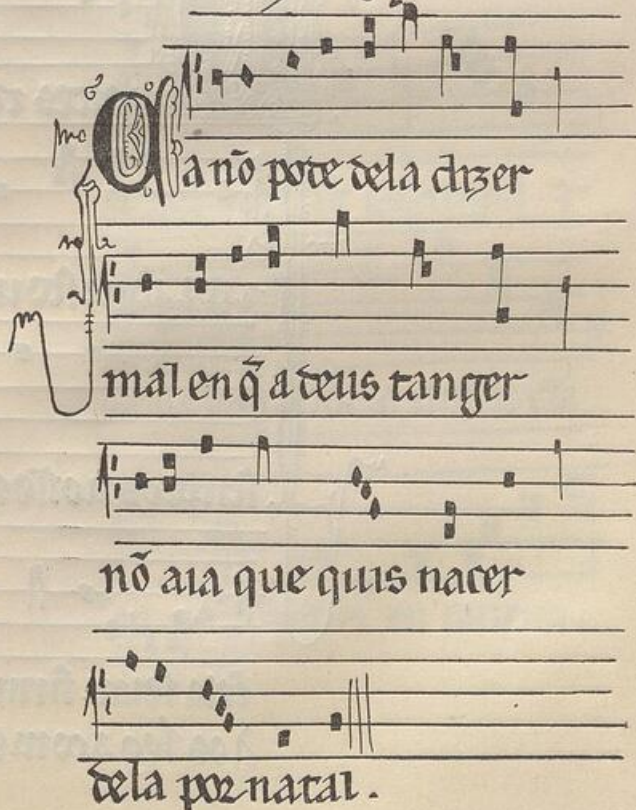 Ca nõ pode dela dizer
mal en q̃ a deus tanger
nõ aia que quis nacer
dela por natal.